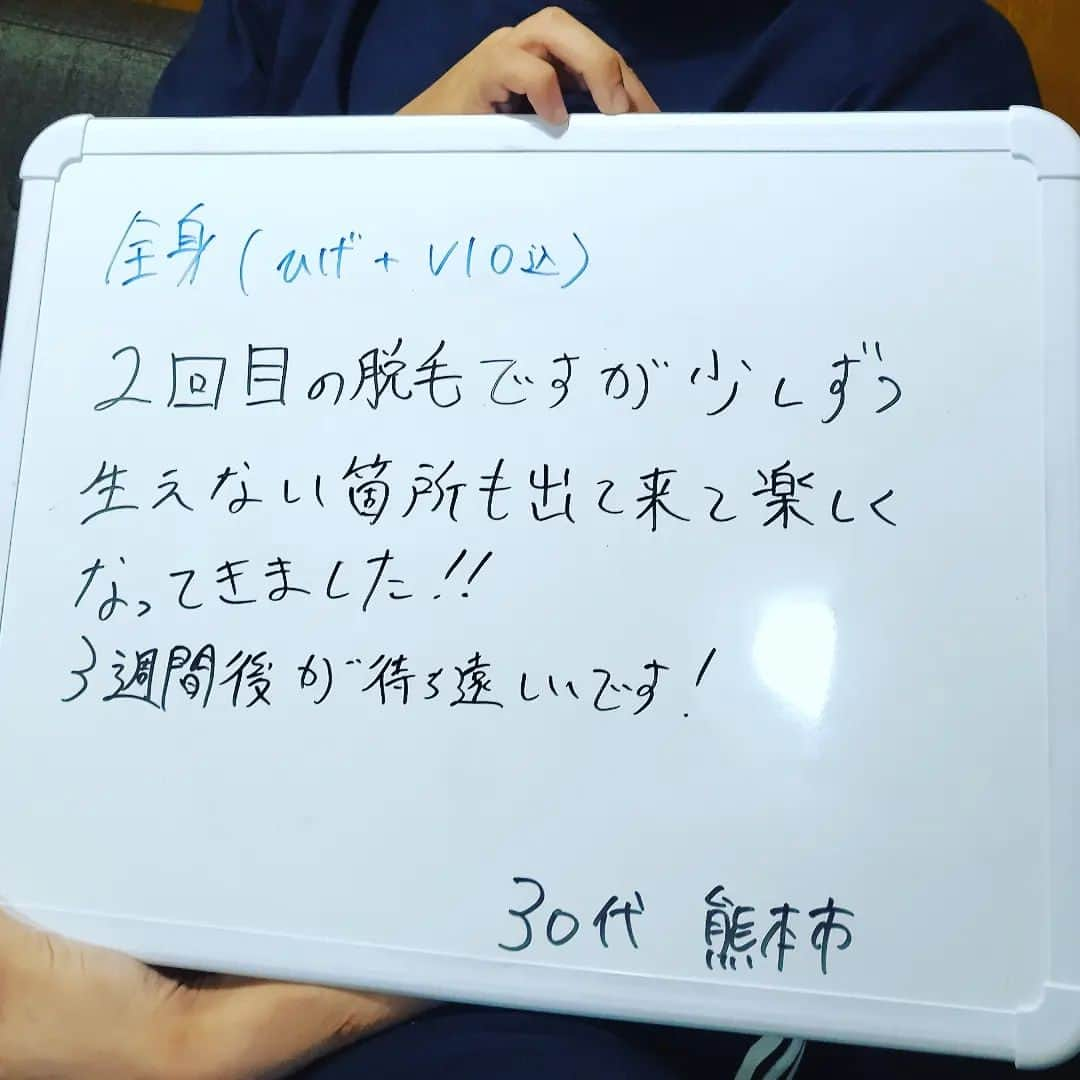 全身(ひげ+VIO込)
2回目の脱毛ですが少しずつ
生えない箇所も出て来て楽しく
なってきました!!
3週間後が待ち遠しいです!
30代 熊本市